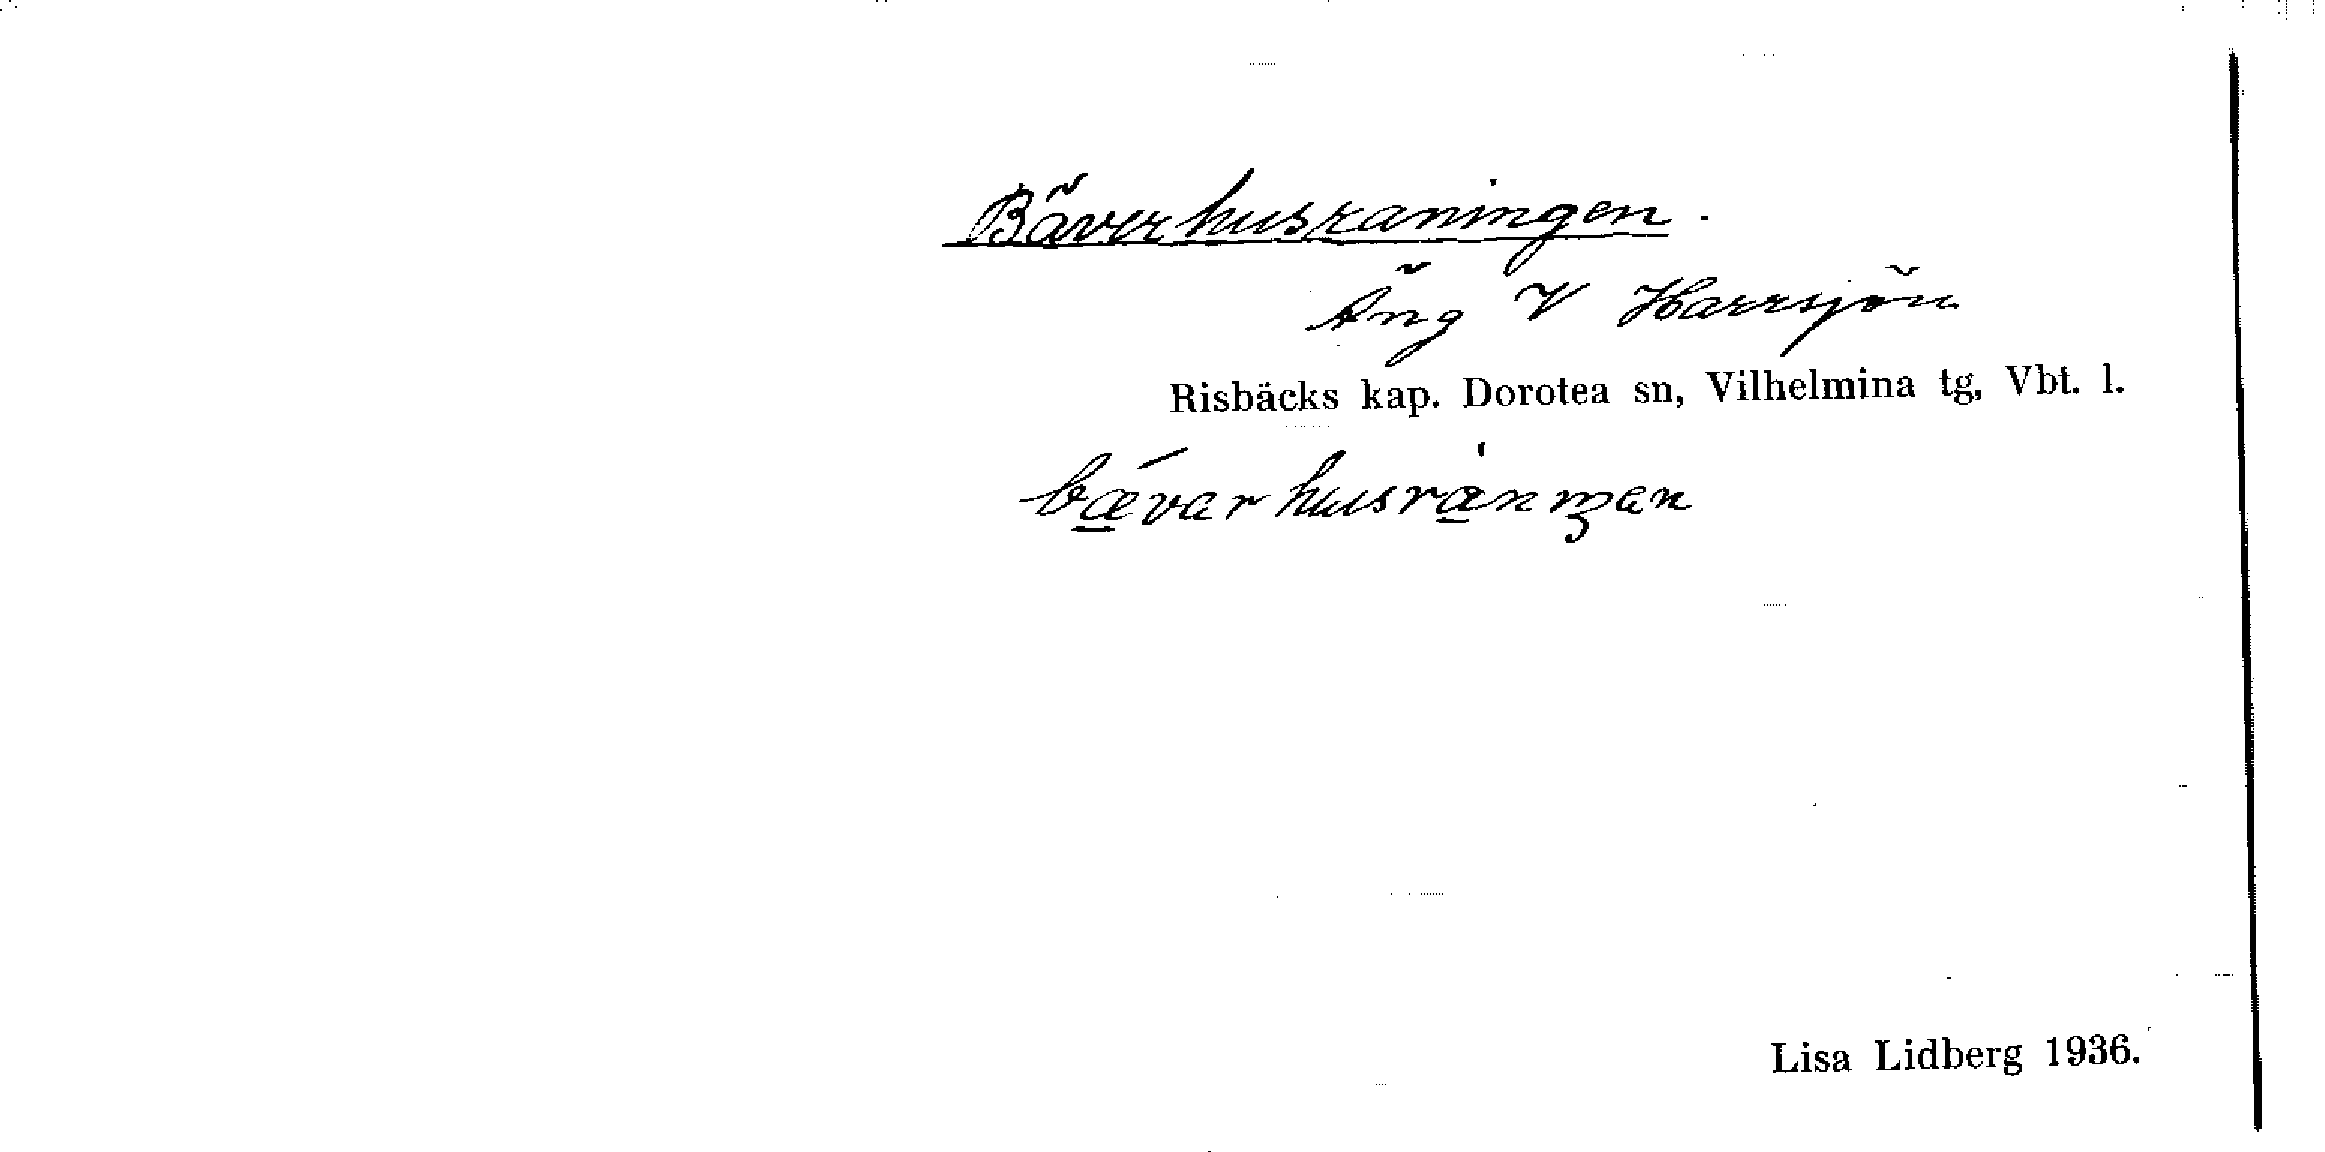 Bäverhusraningen.
Äng V Harrsjön
Risbäcks kap. Dorotea sn, Vilhelmina tg, Vbt. l.
Lisa Lidberg 1936.